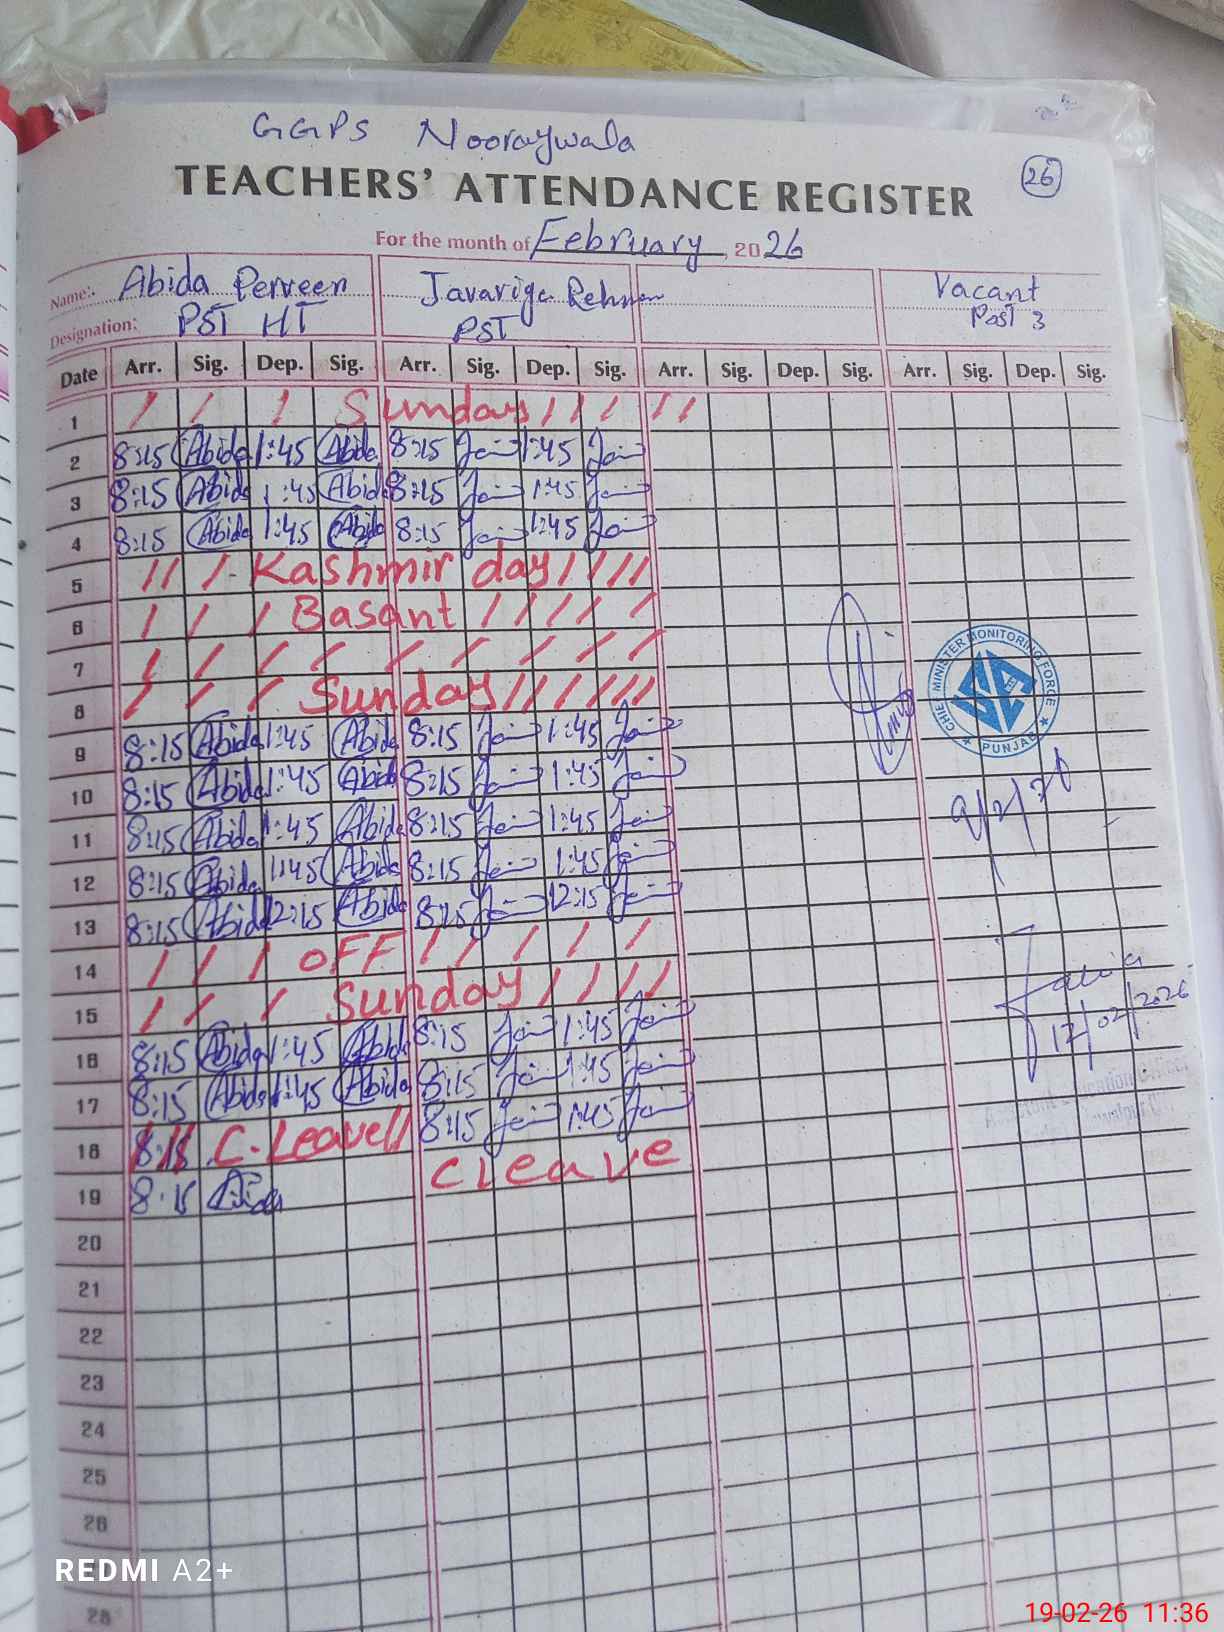 GGPS Nooraywala
TEACHERS' ATTENDANCE REGISTER
26
For the month of February, 2026
Name: Abida Perveen Javariya Rehman Vacant
Designation: PST HT PST Post 3
Date Arr. Sig. Dep. Sig. Arr. Sig. Dep. Sig. Arr. Sig. Dep. Sig. Arr. Sig. Dep. Sig.
1 / / / Sunday / / / / /
2 8:15 Abida 1:45 Abida 8:15 1:45
3 8:15 Abida 1:45 Abida 8:15 1:45
4 8:15 Abida 1:45 Abida 8:15 1:45
5 / / / Kashmir day / / / /
6 / / / Basant / / / / /
7 / / / / / / / / /
8 / / / Sunday / / / / / /
9 8:15 Abida 1:45 Abida 8:15 1:45
10 8:15 Abida 1:45 Abida 8:15 1:45
11 8:15 Abida 1:45 Abida 8:15 1:45
12 8:15 Abida 1:45 Abida 8:15 1:45
13 8:15 Abida 12:15 Abida 8:15 12:15
14 / / / OFF / / / / /
15 / / / Sunday / / / / /
16 8:15 Abida 1:45 Abida 8:15 1:45
17 8:15 Abida 1:45 Abida 8:15 1:45
18 8:15 C. Leave // 8:15 1:45
19 8:15 Abida C leave
20
21
22
23
24
25
26
28
CHIEF MINISTER MONITORING FORCE
PUNJAB
9/2/26
17/02/2026
REDMI A2+
19-02-26 11:36